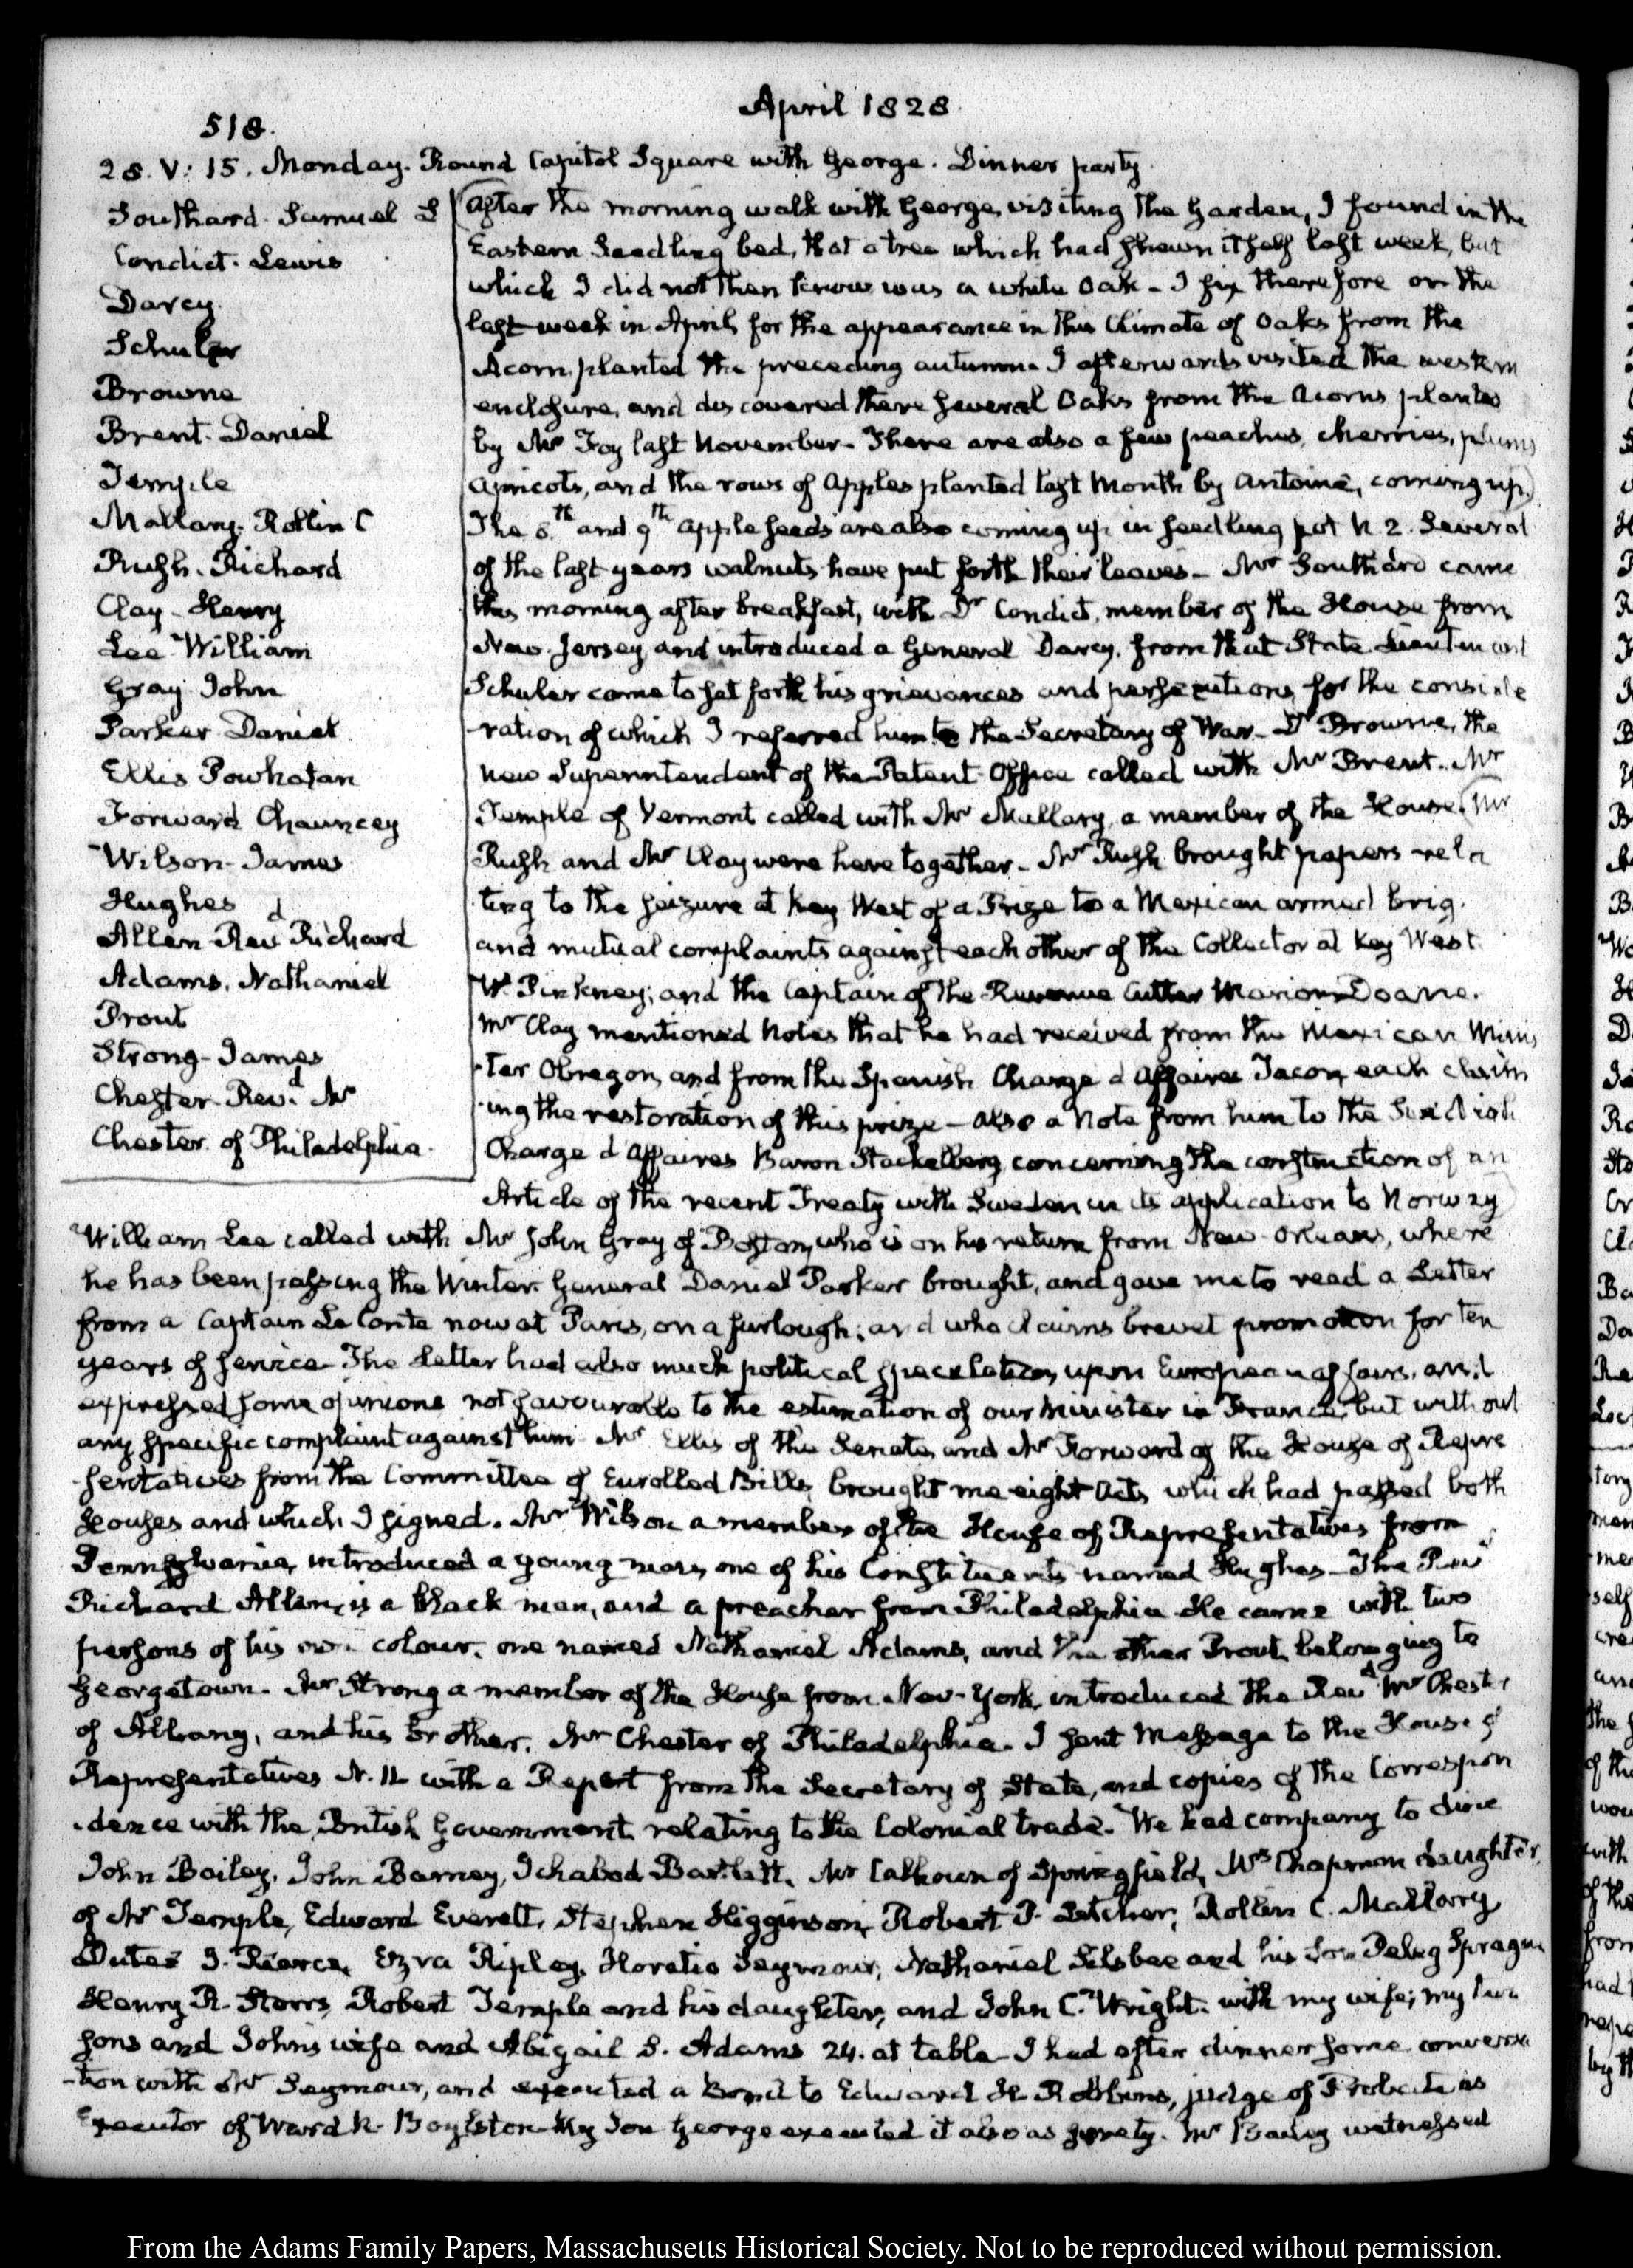 April 1828
518.
28. V: 15. Monday. Round Capitol Square with George. Dinner party.
Southard. Samuel L
Condict. Lewis
Darcy.
Schuler
Browne
Brent. Daniel
Temple
Mallary. Rollin C
Rush. Richard
Clay. Henry
Lee William
Gray John
Parker Daniel
Ellis Powhatan
Forward Chauncey
Wilson James
Hughes
Allen Revd Richard
Adams. Nathaniel
Prout
Strong James
Chester. Revd. Mr
Chester of Philadelphia.
(After the morning walk with George, visiting the Garden, I found in the
Eastern Seedling bed, that a tree which had shewn itself last week, but
which I did not then know was a white Oak – I fix therefore on the
last week in April, for the appearance in this Climate of Oaks from the
Acorn, planted the preceding autumn. I afterwards visited the western
enclosure, and discovered there several Oaks from the acorns planted
by Mr Foy last November. There are also a few peaches, cherries, plums
apricots, and the rows of apples planted last Month by Antoine, coming up)
The 8th and 9th apple seeds are also coming up in seedling pot N. 2. Several
of the last years walnuts have put forth their leaves – Mr Southard came
this morning after breakfast, with Dr Condict, member of the House from
New-Jersey, and introduced a General Darcy, from that State. Lieutenant
Schuler came to set forth his grievances and persecutions, for the conside
-ration of which I referred him to the Secretary of War – Dr Browne, the
new Superintendent of the Patent Office called with Mr Brent. Mr
Temple of Vermont called with Mr Mallary, a member of the House. (Mr
Rush and Mr Clay were here together – Mr Rush brought papers rela
-ting to the seizure at Key West of a Prize to a Mexican armed brig.
and mutual complaints against each other of the Collector at Key West
W. Pinkney; and the Captain of the Revenue Cutter Marion Doane.
Mr Clay mentioned Notes that he had received from the Mexican Minis
-ter Obregon, and from the Spanish Charge d'Affaires Tacon, each claim
-ing the restoration of this prize – also a Note from him to the Swedish
Charge d'Affaires Baron Stackelberg, concerning the construction of an
Article of the recent Treaty with Sweden in its application to Norway)
William Lee called with Mr John Gray of Boston, who is on his return from New-Orleans, where
he has been passing the Winter. General Daniel Parker brought, and gave me to read a Letter
from a Captain Le Conte now at Paris, on a furlough; and who claims brevet promotion for ten
years of service. The Letter had also much political speculation, upon European affairs, and
expressed some opinions not favourable to the estimation of our Minister in France, but without
any specific complaint against him. Mr Ellis of the Senate, and Mr Forward of the House of Repre
-sentatives from the Committee of Enrolled Bills, brought me eight Acts which had passed both
Houses and which I signed. Mr Wilson a member of the House of Representatives from
Pennsylvania, introduced a young man, one of his Constituents named Hughes – The Revd
Richard Allen, is a black man, and a preacher from Philadelphia. He came with two
persons of his own colour, one named Nathaniel Adams, and the other Prout, belonging to
Georgetown. Mr Strong a member of the House from New-York, introduced the Revd Mr Chester
of Albany, and his brother, Mr Chester of Philadelphia. I sent Message to the House of
Representatives N. 11 with a Report from the Secretary of State, and copies of the Correspon
-dence with the British Government relating to the Colonial trade. We had company to dine
John Bailey, John Barney, Ichabod Bartlett, Mr Calhoun of Springfield, Mrs Chapman daughter
of Mr Temple, Edward Everett, Stephen Higginson, Robert P. Letcher, Rollin C. Mallary
Dutee J. Pearce, Ezra Ripley, Horatio Seymour, Nathaniel Silsbee and his Son Peleg Sprague
Henry R. Storrs, Robert Temple and his daughter, and John C. Wright. with my wife, my two
sons and John's wife and Abigail S. Adams 24. at table – I had after dinner some conversa
-tion with Mr Seymour, and executed a Bond to Edward H. Robbins, judge of Probate as
Executor of Ward N. Boylston – My Son George executed it also as surety. Mr Bailey witnessed
From the Adams Family Papers, Massachusetts Historical Society. Not to be reproduced without permission.